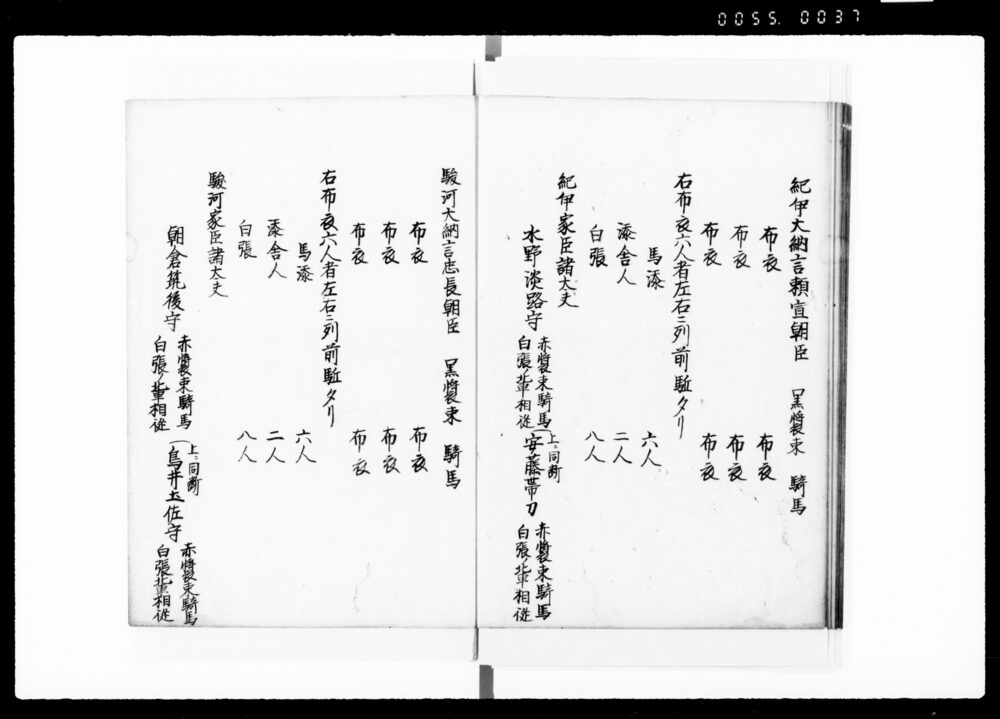 0055. 0037
紀伊大納言頼宣朝臣 黒装束 騎馬
布衣 布衣
布衣 布衣
布衣 布衣
右布衣六人者左右ニ列前駈タリ
馬添 六人
添舎人 二人
白張 八人
紀伊家臣諸大夫
水野淡路守 赤装束騎馬 白張ノ輩相従 上ニ同断 安藤帯刀 赤装束騎馬 白張ノ輩相従
駿河大納言忠長朝臣 黒装束 騎馬
布衣 布衣
布衣 布衣
布衣 布衣
右布衣六人者左右ニ列前駈タリ
馬添 六人
添舎人 二人
白張 八人
駿河家臣諸大夫
朝倉筑後守 赤装束騎馬 白張ノ輩相従 上ニ同断 鳥井土佐守 赤装束騎馬 白張ノ輩相従